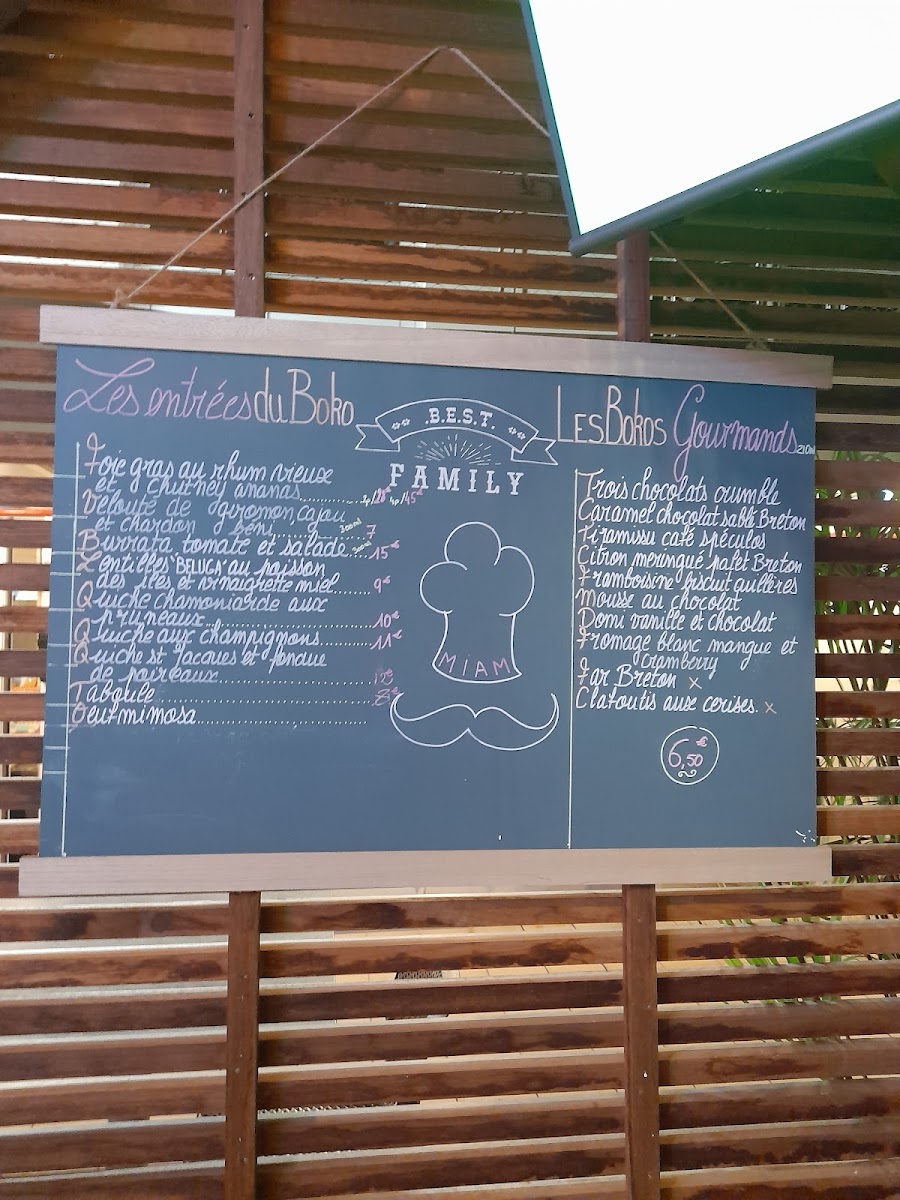 Les entrées du Boko
Foie gras au rhum vieux
et chutney ananas
Velouté de giromon, cajou
et chardon beni 7
Burrata tomate et salade 15€
Lentilles BELUGA au poisson
des îles et vinaigrette miel 9€
Quiche chamoniarde aux
pruneaux 10€
Quiche aux champignons 11€
Quiche st Jacques et fondue
de poireaux
Taboulé 8€
Oeuf mimosa
.B.E.S.T.
FAMILY
MIAM
LES BOKOS Gourmands
Trois chocolats crumble
Caramel chocolat sablé Breton
Tiramissu café spéculos
Citron meringué palet Breton
Framboisine biscuit cuillères
Mousse au chocolat
Domi vanille et chocolat
Fromage blanc mangue et
cramberry
Far Breton x
Clafoutis aux cerises. x
6,50€